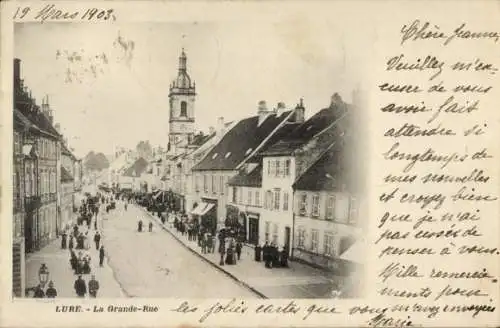 19 Mars 1903.
Chère Jeanne,
Veuillez m'ex-
cuser de vous
avoir fait
attendre si
longtemps de
mes nouvelles
et croyez bien
que je n'ai
pas cessée de
penser à vous.
Mille remercie-
ments pour
LURE. - La Grande-Rue
les jolies cartes que vous
m'avez envoyées
Marie